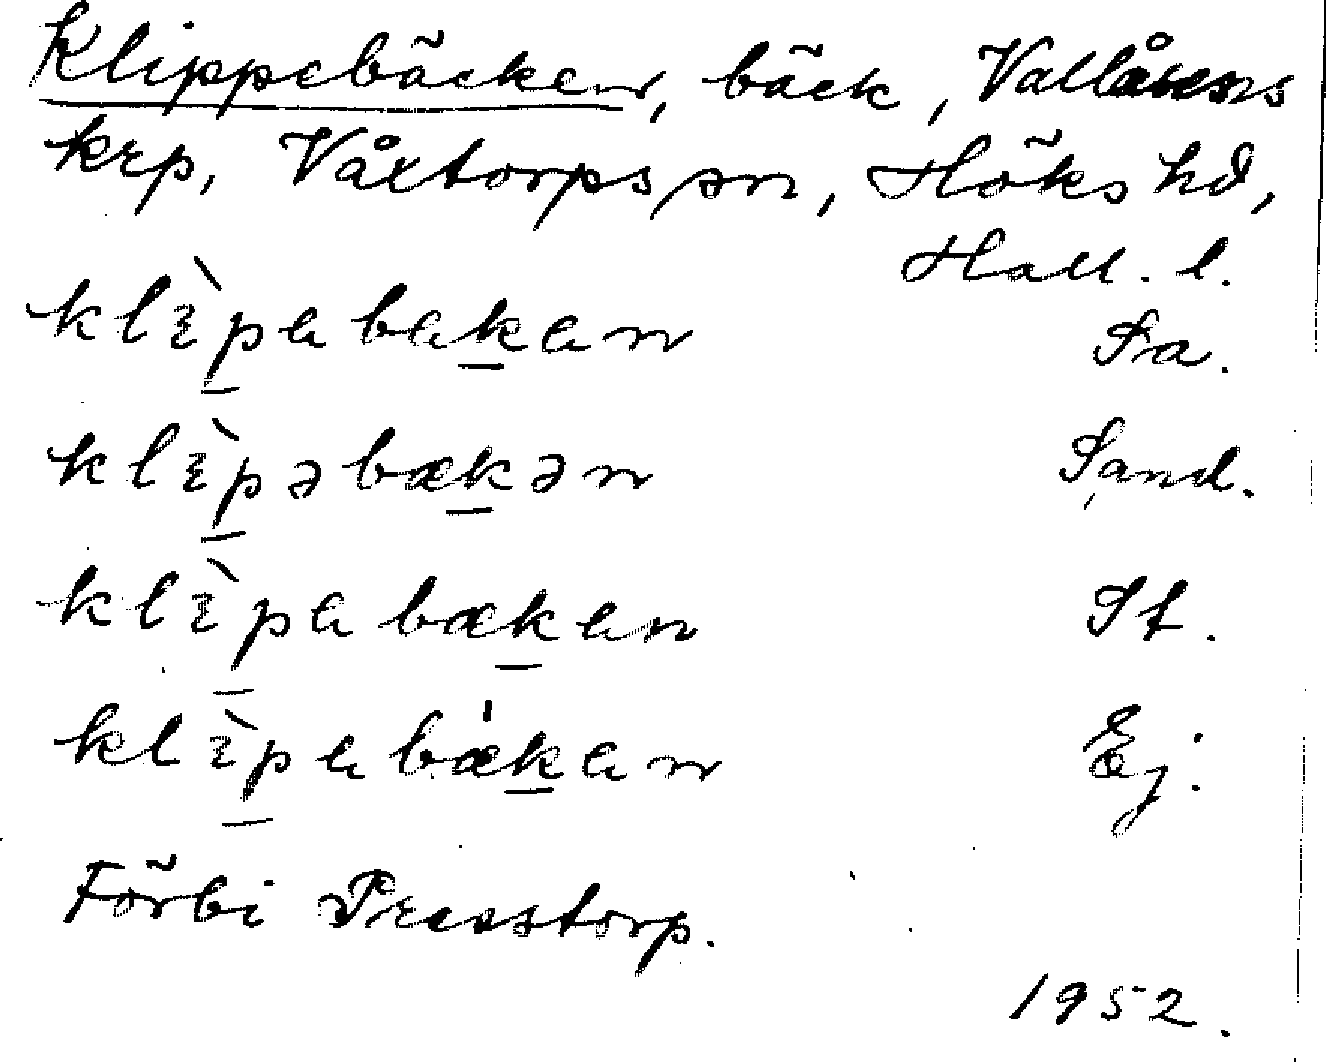 Klippebäcken, bäck, Vallåsens
krp, Våxtorps sn, Höks hd,
Hall. l.
klɛ̀pabakan Sa.
klɛ̀pəbækən Sand.
klɛ̀pabækan St.
klɛ̀pabækan Ej.
Förbi Prestorp.
1952.